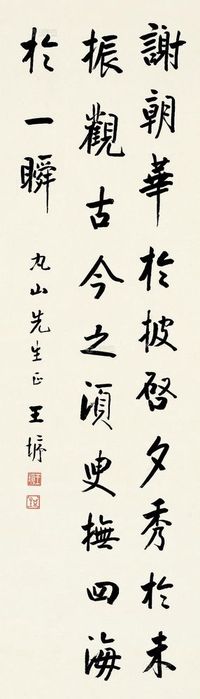 謝朝華於披啓夕秀於未
振觀古今之須臾撫四海
於一瞬
丸山先生正 王垿